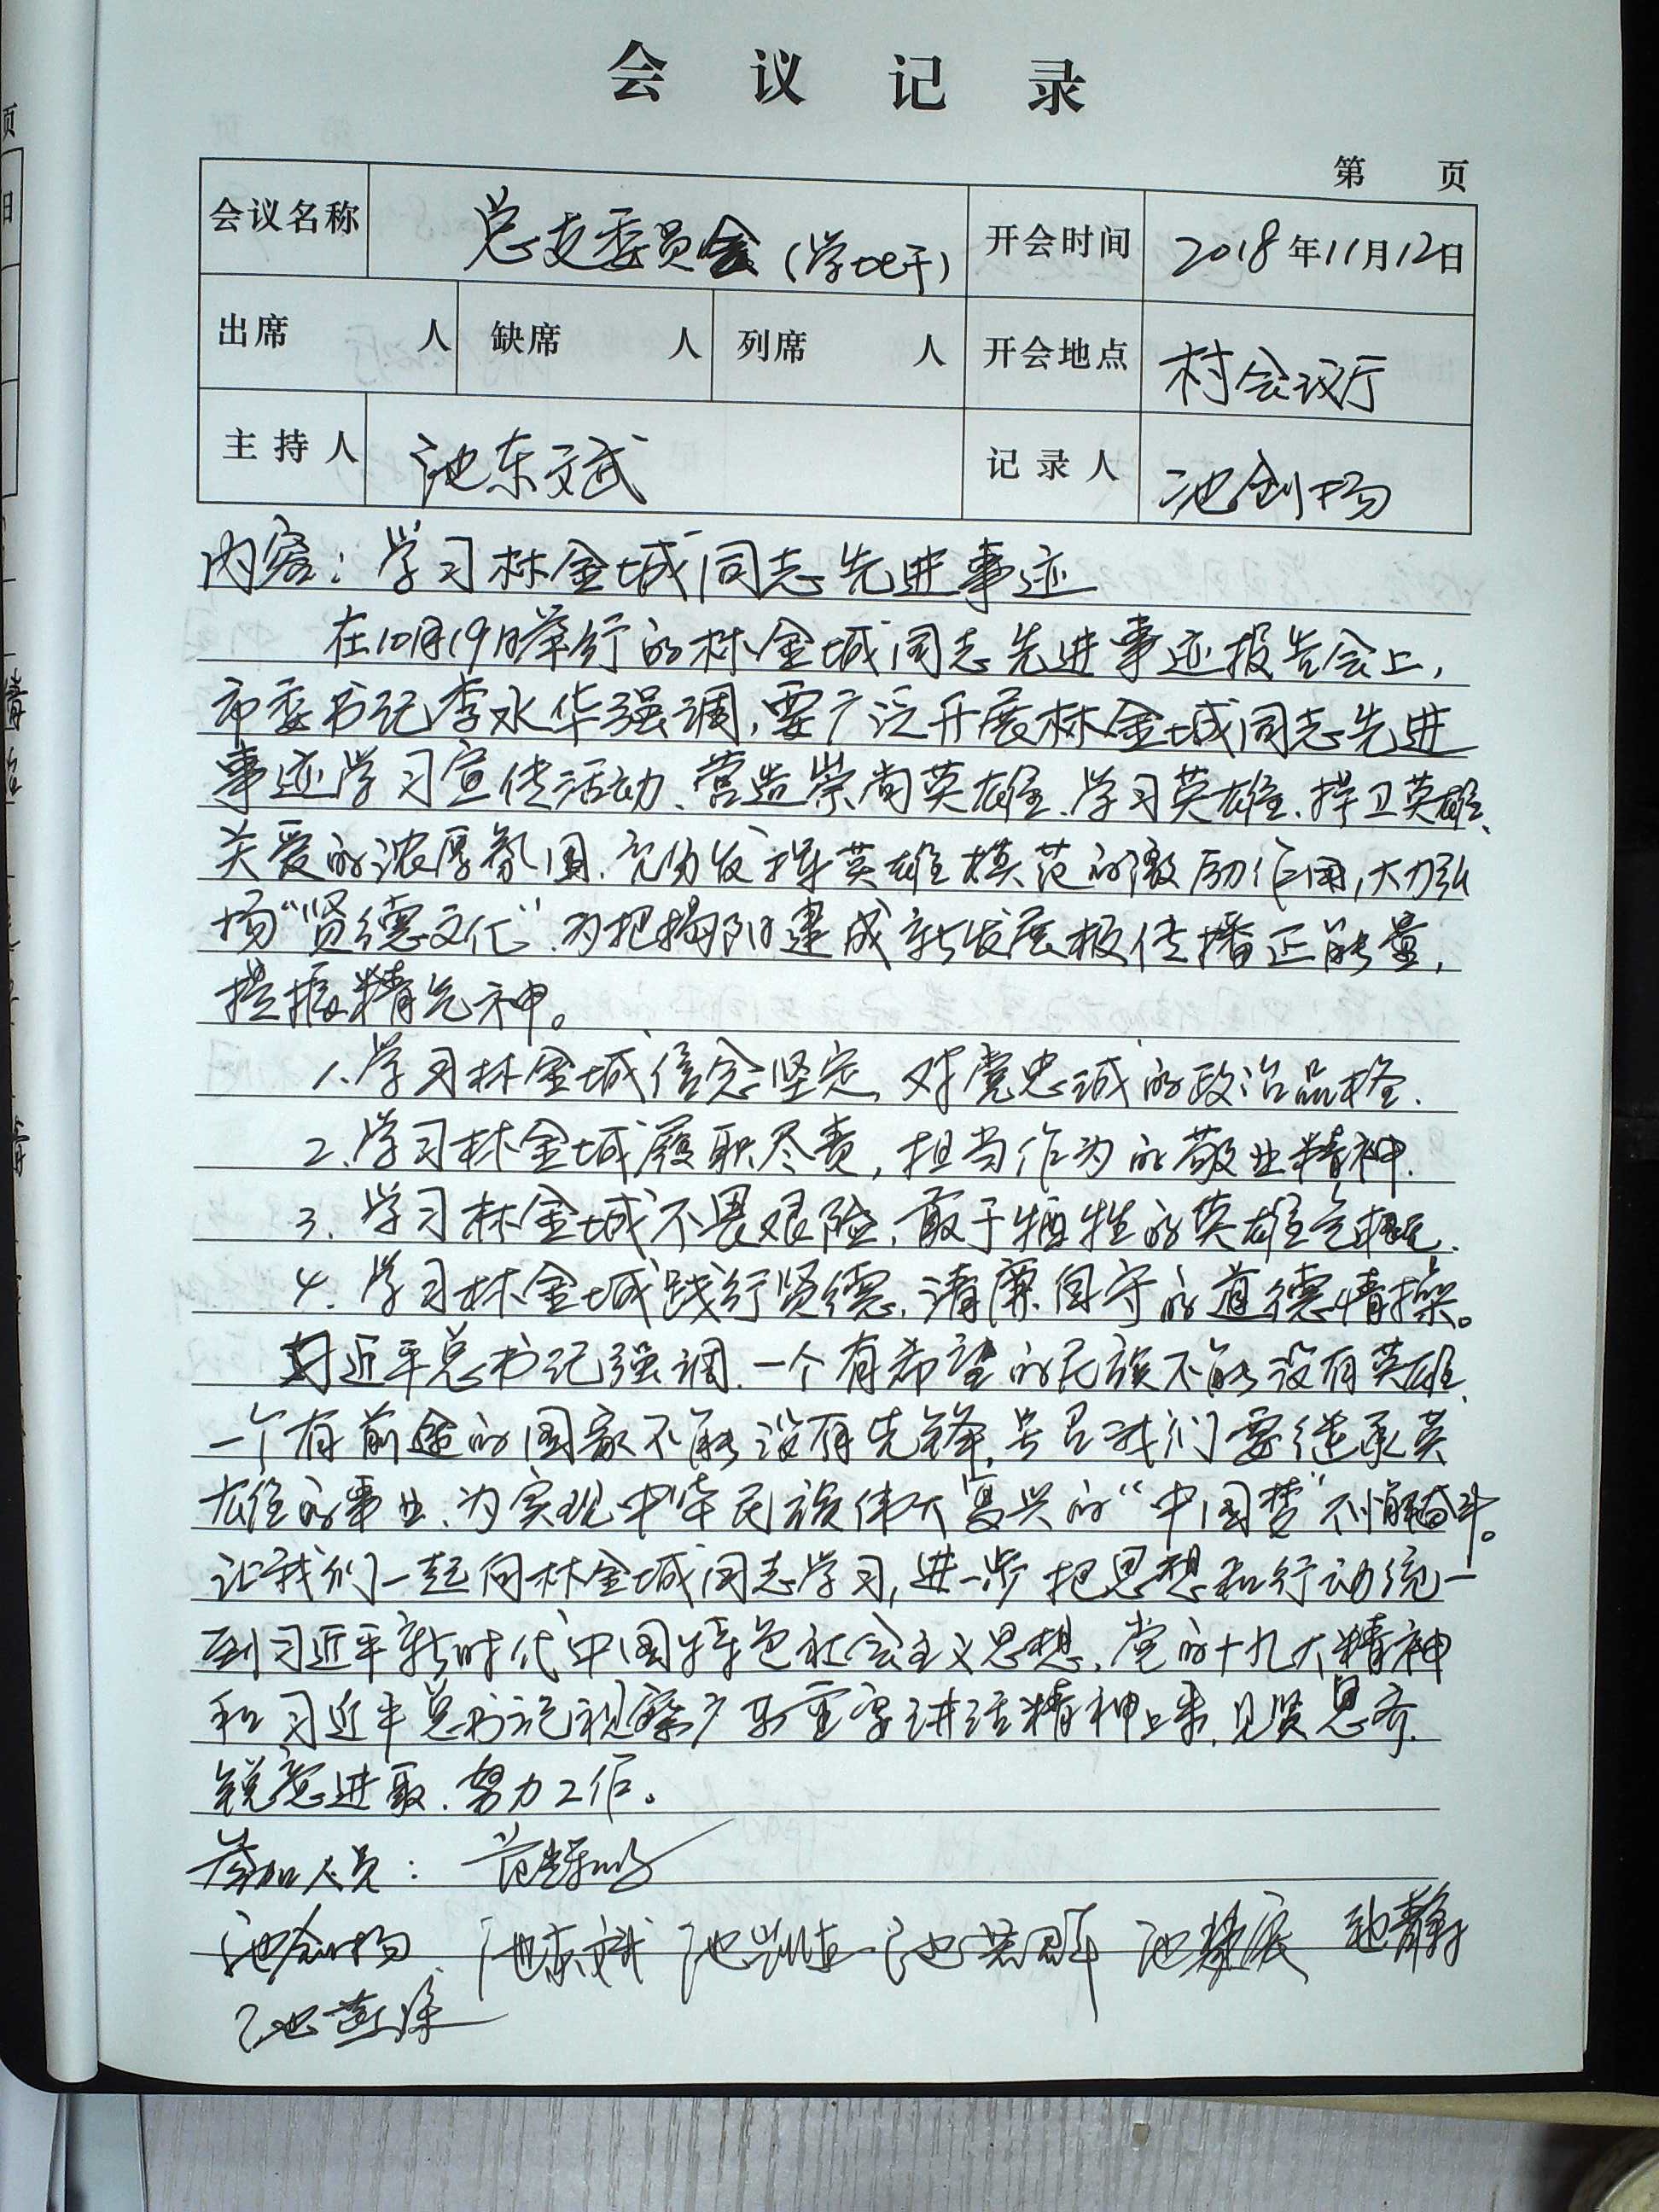 会议记录
第 页
会议名称 总支委员会(学地干) 开会时间 2018年11月12日
出席 人 缺席 人 列席 人 开会地点 村会议厅
主持人 池东文武 记录人 池创扬
内容：学习林金城同志先进事迹
在10月19日举行的林金城同志先进事迹报告会上，
市委书记李水华强调，要广泛开展林金城同志先进
事迹学习宣传活动、营造崇尚英雄、学习英雄、捍卫英雄、
关爱的浓厚氛围、充分发挥英雄模范的激励作用，大力弘
扬“贤德文化”、为把揭阳建成新发展极传播正能量，
提振精气神。
1、学习林金城信念坚定、对党忠诚的政治品格.
2、学习林金城履职尽责，担当作为的敬业精神.
3、学习林金城不畏艰险、敢于牺牲的英雄气概.
4、学习林金城践行贤德、清廉自守的道德情操。
习近平总书记强调、一个有希望的民族不能没有英雄、
一个有前途的国家不能没有先锋，号召我们要继承英
雄的事业、为实现中华民族伟大复兴的“中国梦”不懈奋斗。
让我们一起向林金城同志学习，进一步把思想和行动统一
到习近平新时代中国特色社会主义思想、党的十九大精神
和习近平总书记视察广东重要讲话精神上来，见贤思齐、
锐意进取、努力工作。
参加人员：
池创扬